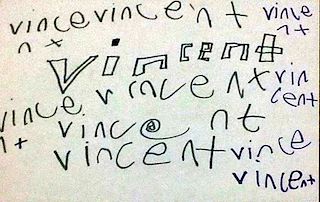 vincevincent vince
nt nt
Vincent
vince vincent vin
cent
nt vince nt
vincent vince
vincent